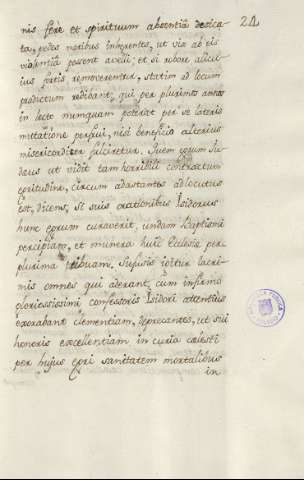 24
nis ferè et spirituum absentiâ desica-
ta, pedes natibus inhærentes, ut vix ab eis
violentiâ possent avelli; et si vitore alicu-
ius fortis removerentur, statim ad locum
productum redibant; qui per plurimos annos
in lecto numquam poterat per se lateris
mutatione perfrui, nisi beneficio alterius
misericorditer fulciretur. Quem cum Ju-
dæus ut vidit tam horribili contractum
egritudine, circum adastantes adlocutus
est, dicens, Si suis orationibus Isidorus
hunc eorum curaverit, undam Baptismi
percipiam, et munera huic Eclesiæ per
plurima tribuam. Fusisis igitur lacri-
mis omnes qui aderant, cum infirmo
gloriosissimi confessoris Isidori attentius
exorabant clementiam, deprecantes, ut sui
honoris excellentiam in curia cælesti
per hujus egri sanitatem mortalibus
in